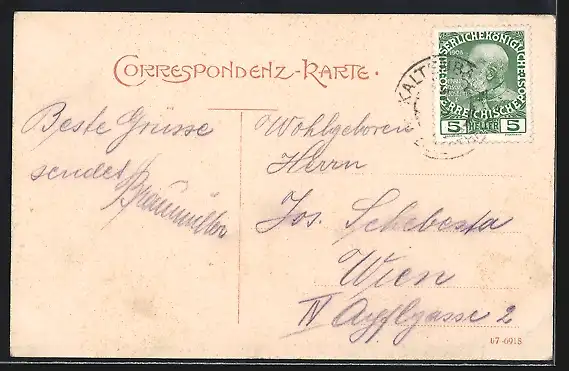 CORRESPONDENZ-KARTE.
KAISERLICHE KÖNIGLICHE ÖSTERREICHISCHE POST
1908
5 HELLER 5
KALTENB
Beste Grüsse
sendet
Wohlgeboren
Herrn
Jos. Schebesta
Wien
IV Apfлgasse 2
07-6918